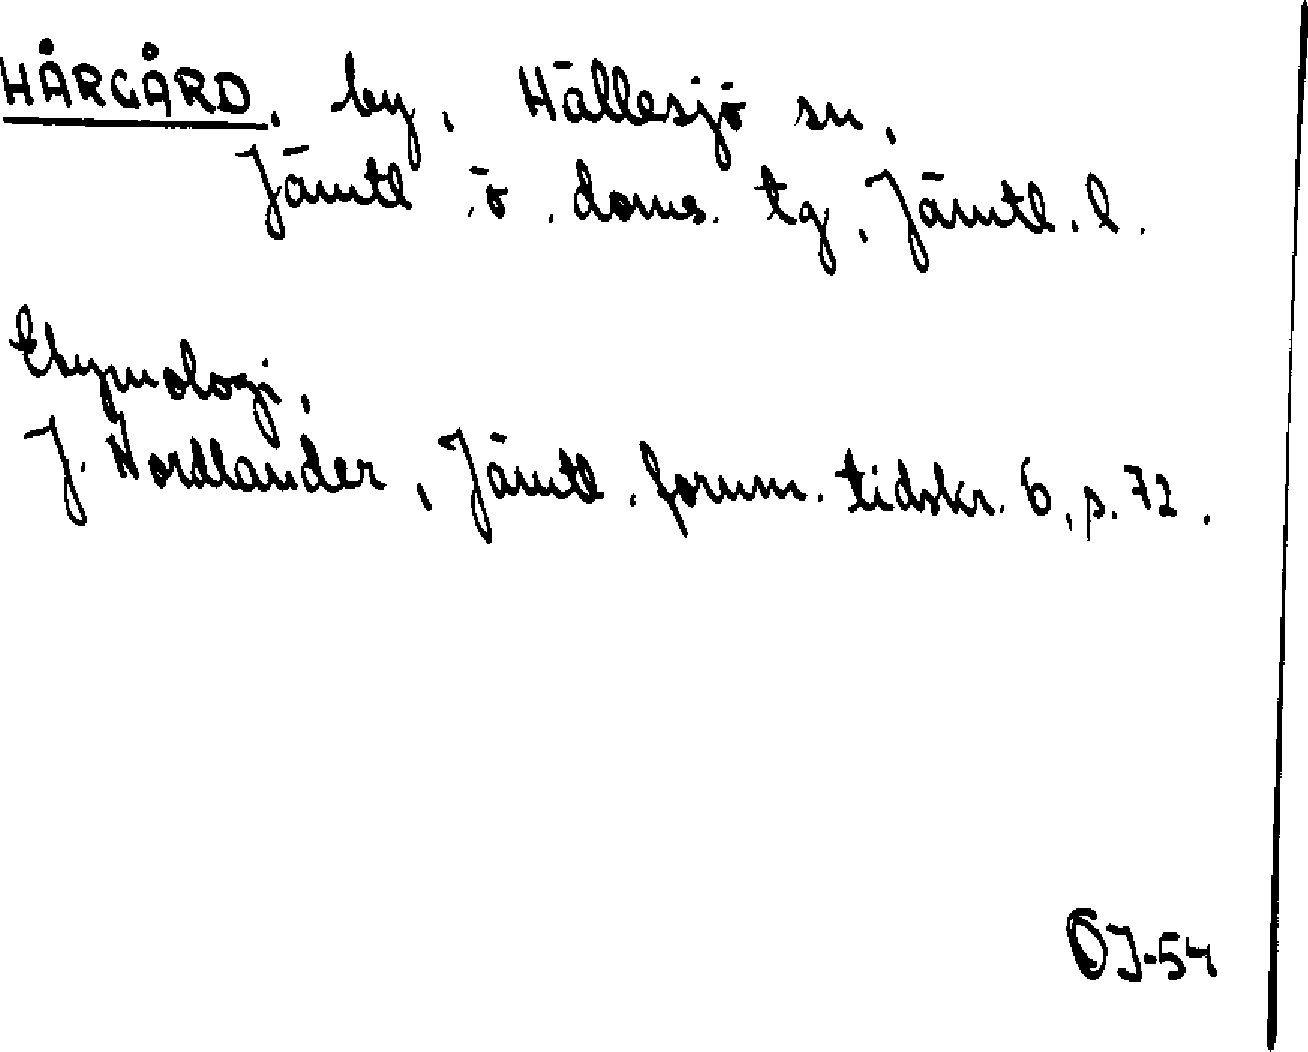 HÅRGÅRD, by, Hällesjö sn,
Jämtl. ö. doms. tg, Jämtl. l.
Etymologi,
J. Nordlander, Jämtl. fornm. tidskr. 6, s. 72.
OJ-54